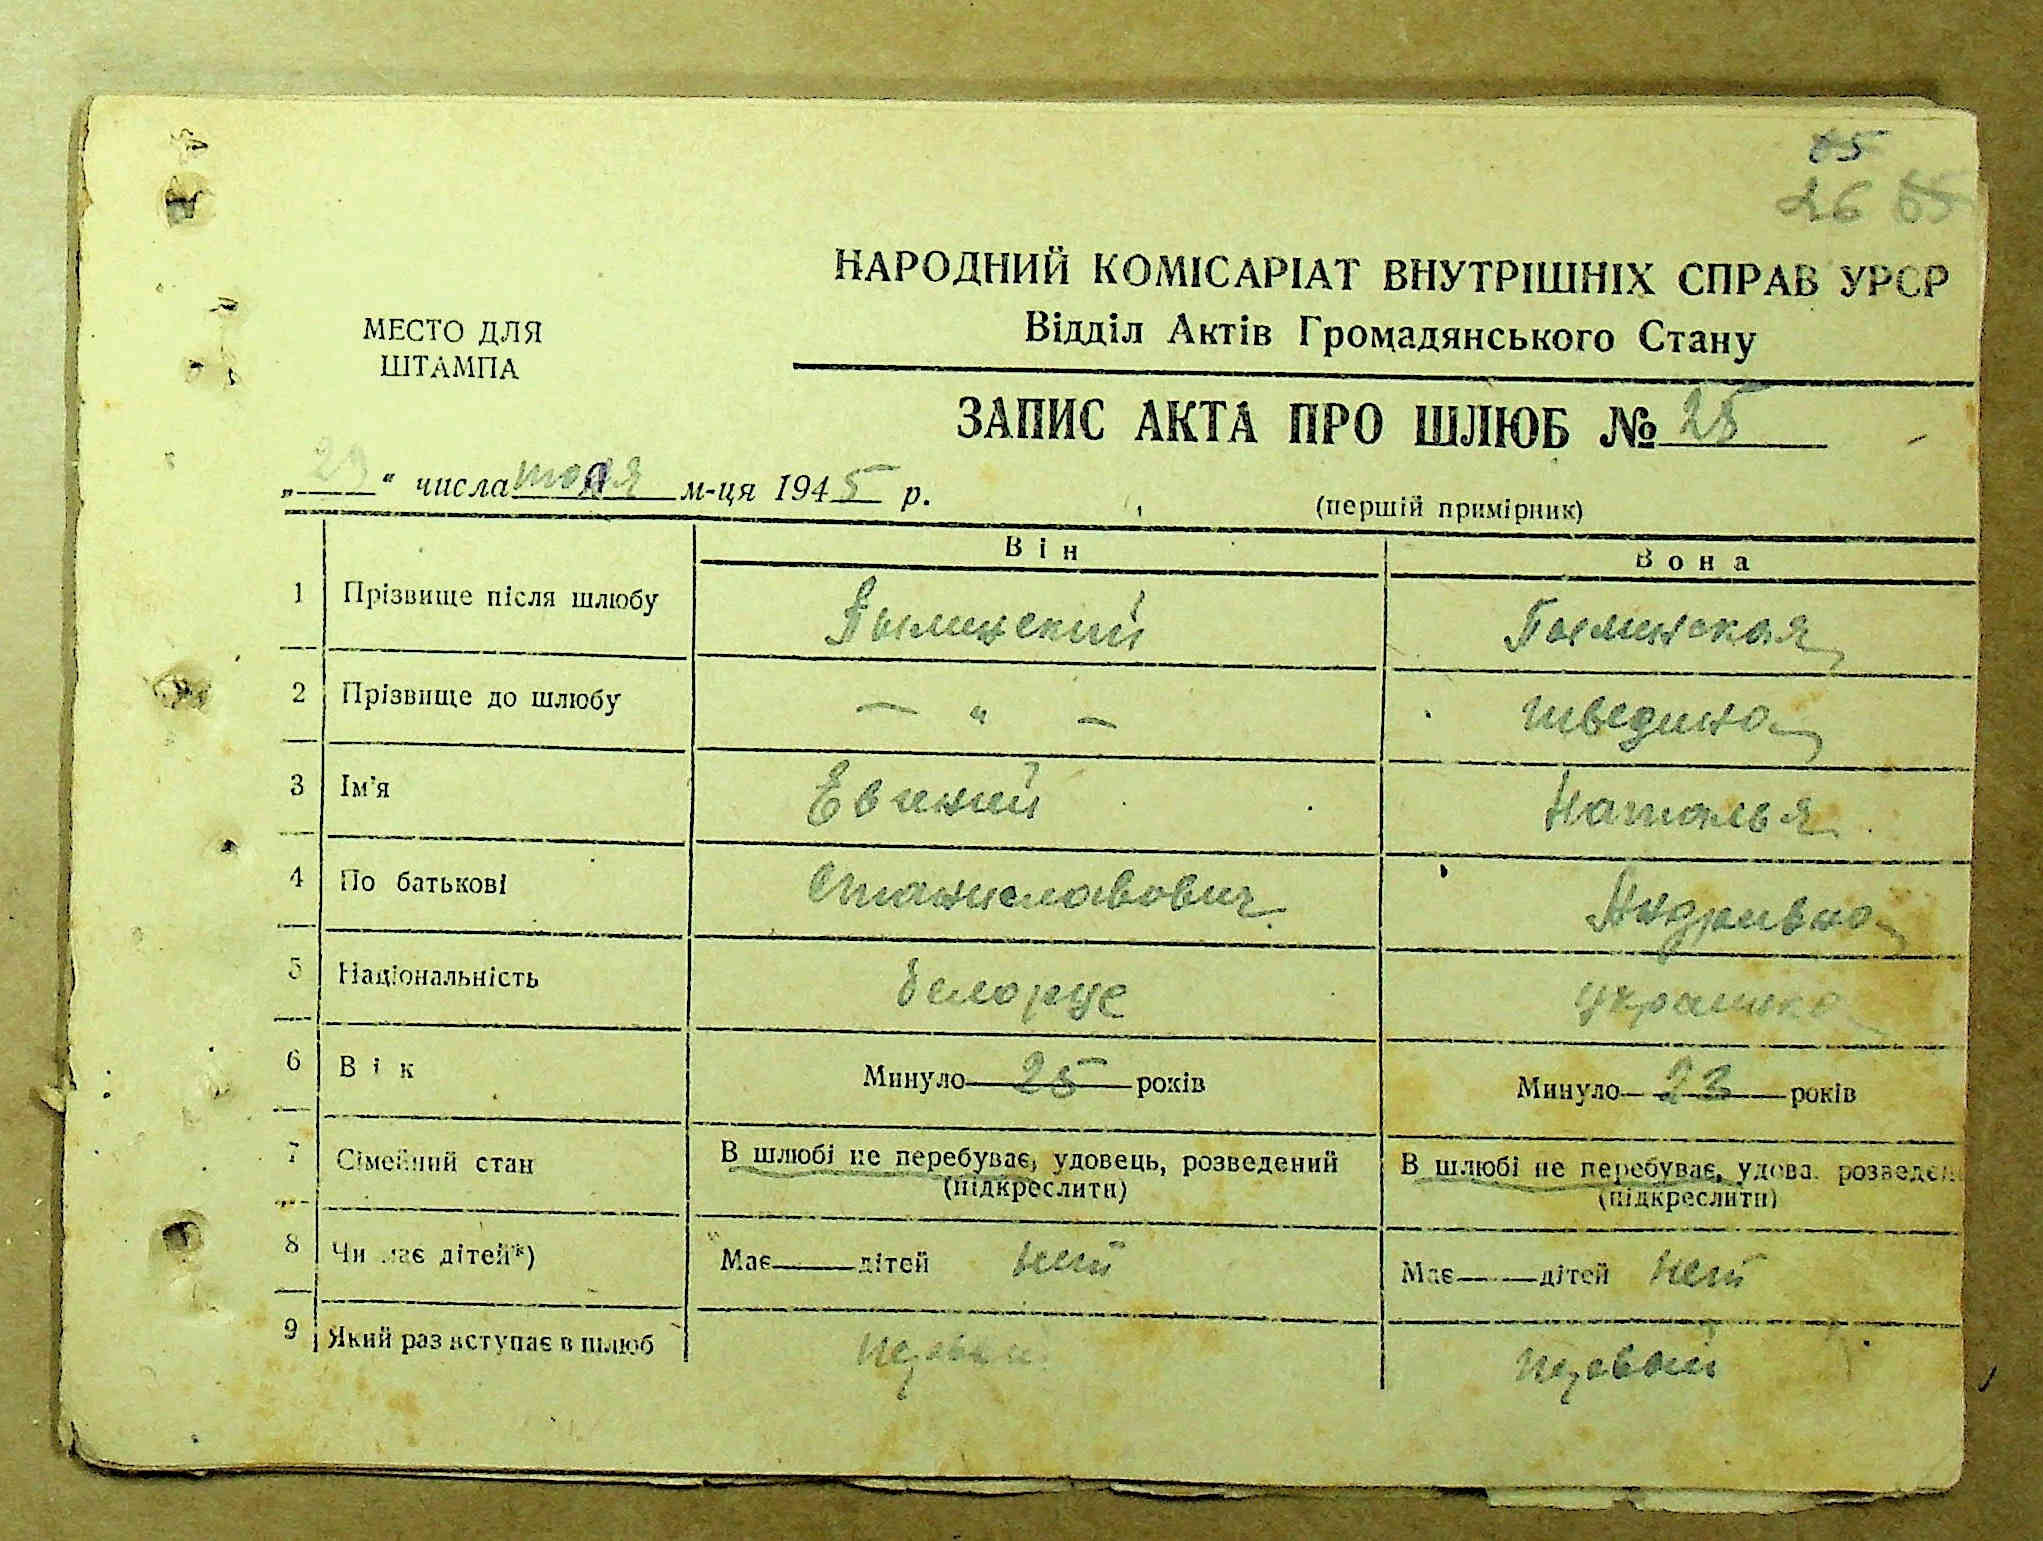 85
26 85
НАРОДНИЙ КОМІСАРІАТ ВНУТРІШНІХ СПРАВ УРСР
Відділ Актів Громадянського Стану
МЕСТО ДЛЯ
ШТАМПА
ЗАПИС АКТА ПРО ШЛЮБ № 25
„29“ числа м-ця 1945 р.
(першій примірник)
Він Вона
1 Прізвище після шлюбу Гыминский Гыминская
2 Прізвище до шлюбу — " — Шведина
3 Ім'я Евгений Наталья
4 По батькові Станиславович Андривна
5 Національність белорус украинка
6 Вік Минуло 25 років Минуло 23 років
7 Сімейний стан В шлюбі не перебуває, удовець, розведений В шлюбі не перебуває, удова. розведен
(підкреслити) (підкреслити)
8 Чи має дітей*) Має — дітей нет Має — дітей нет
9 Який раз вступає в шлюб первый первый